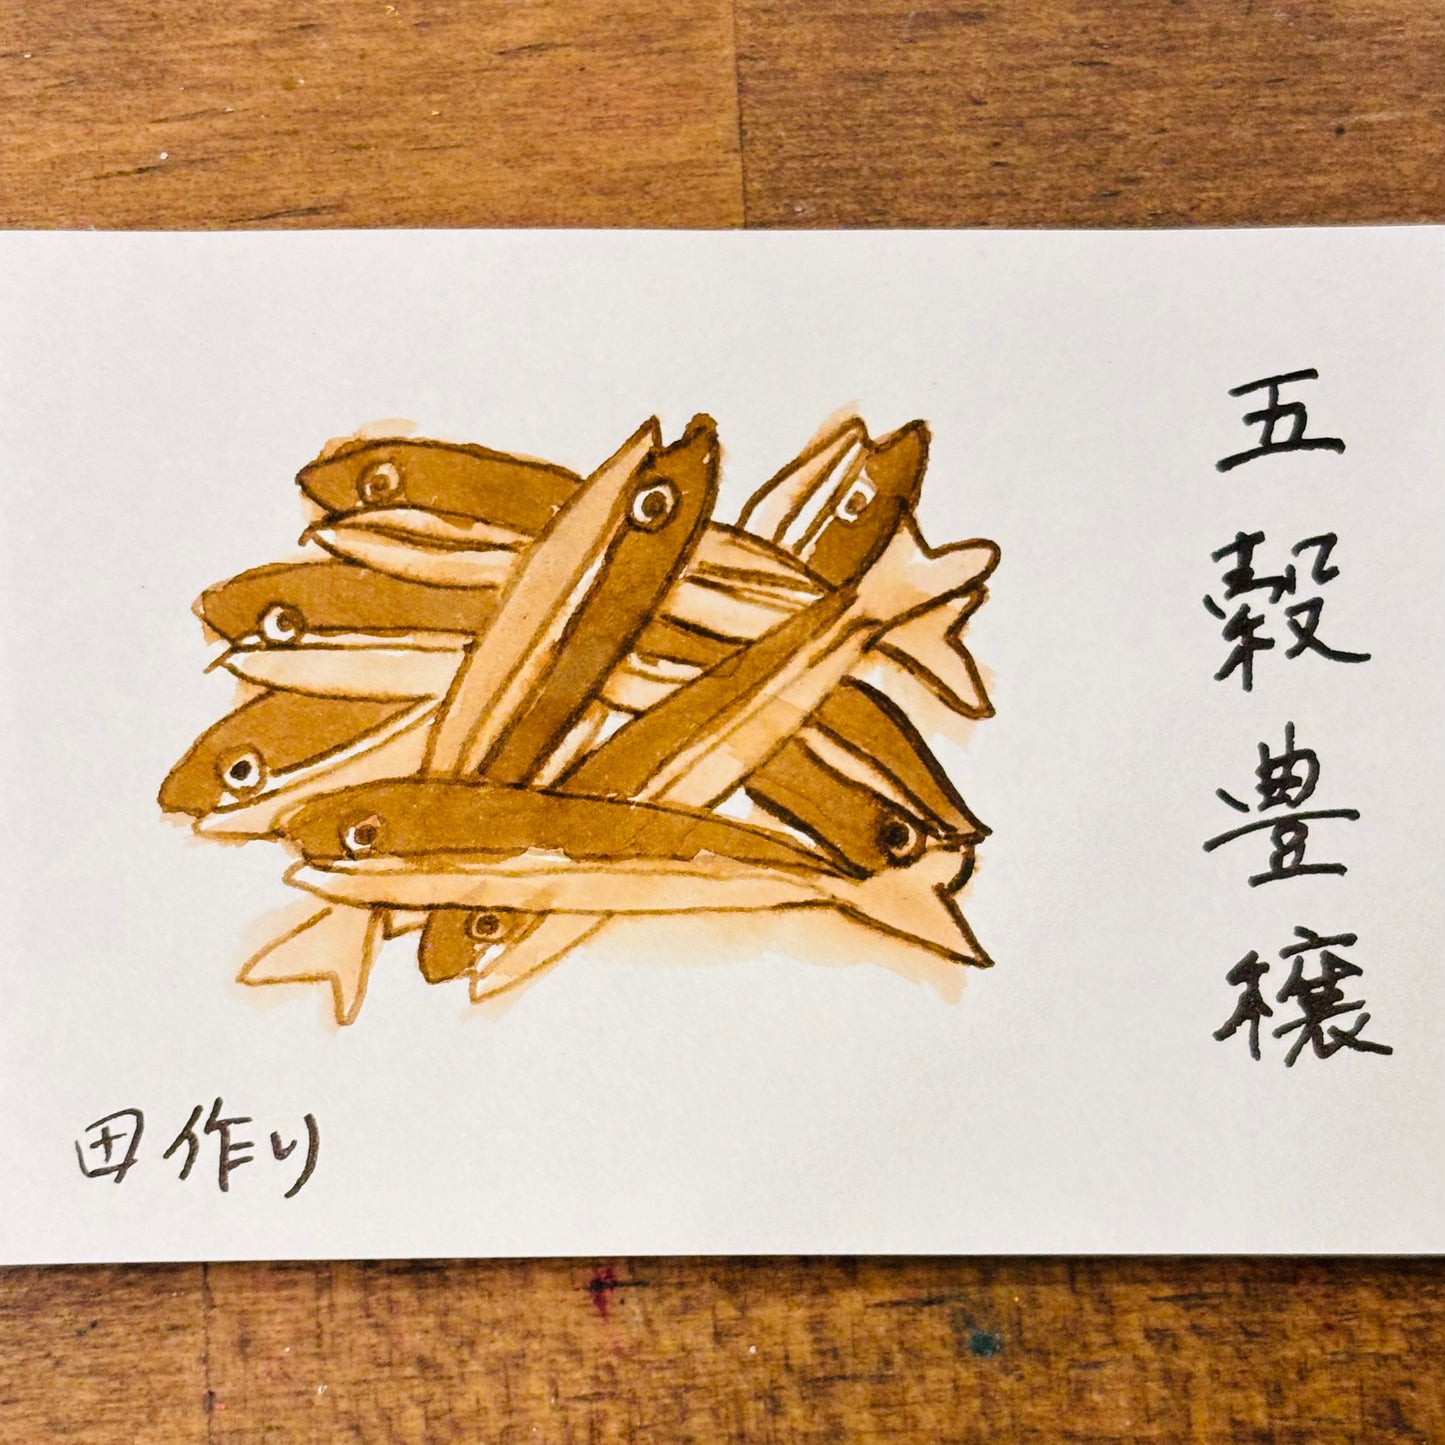 五穀豊穣
田作り